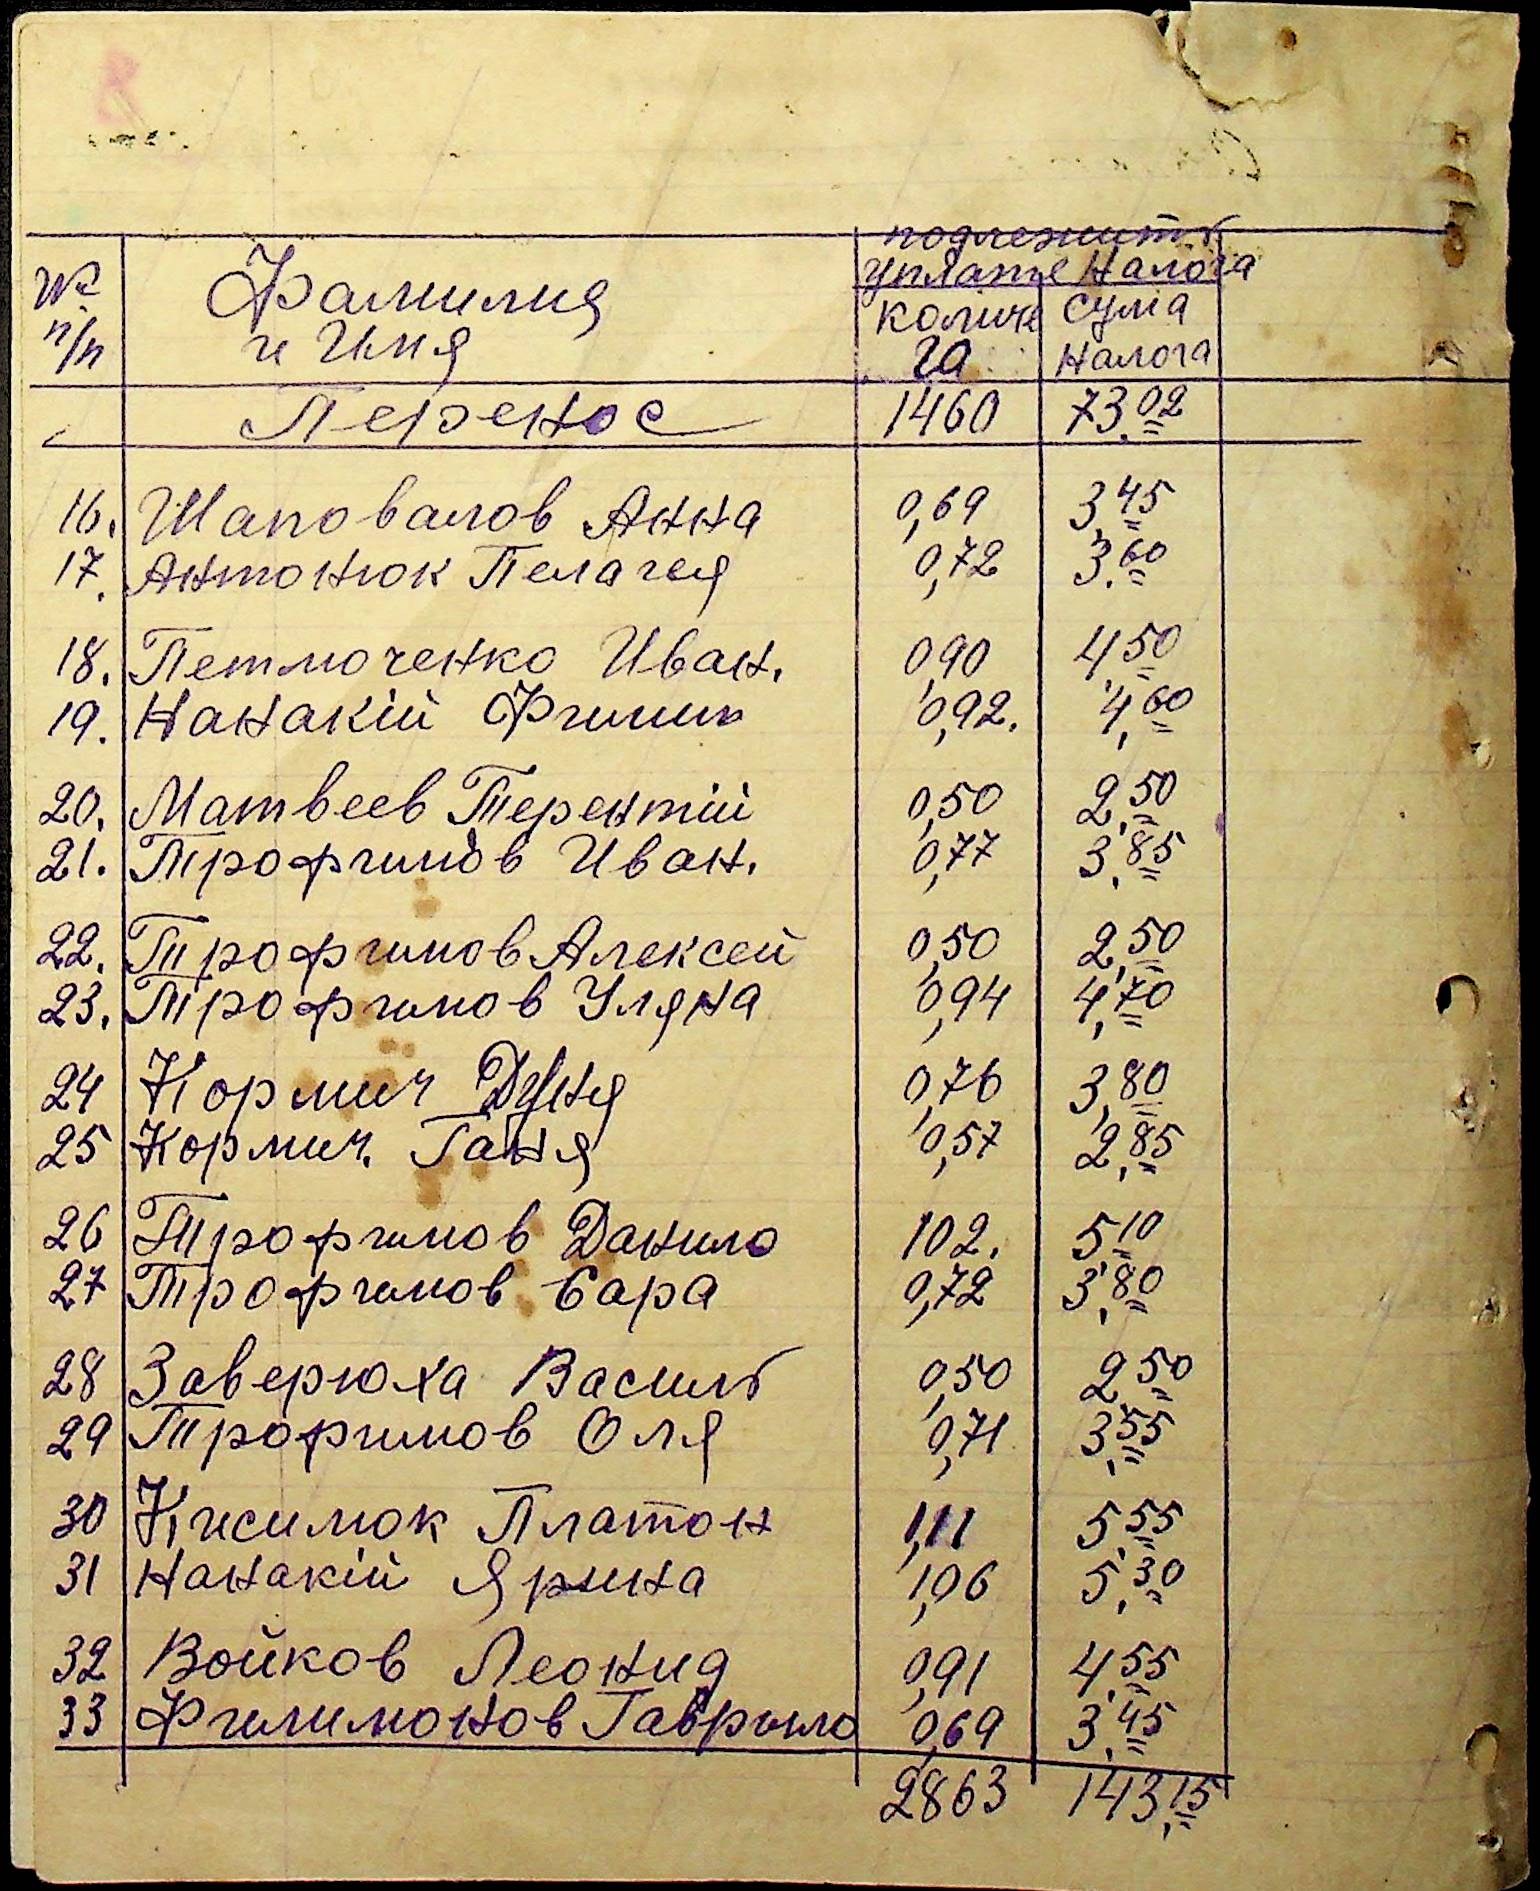 подлежить
№ Фамилия уплате Налога
п/п и Имя количе сума
га Налога
Перенос 1460 73.02
16. Шаповалов Анна 0,69 3,45
17. Антонюк Пелагея 0,72 3.60
18. Петмоченко Иван. 0,90 4,50
19. Нанакій Филип 0,92. 4,60
20. Матвеев Терентій 0,50 2,50
21. Трофимов Иван. 0,77 3,85
22. Трофимов Алексей 0,50 2,50
23. Трофимов Уляна 0,94 4,70
24 Кормич Дуня 0,76 3,80
25 Кормич. Ганя 0,57 2,85
26 Трофимов Данило 102. 5,10
27 Трофимов Сара 0,72 3,80
28 Заверюха Василь 0,50 2,50
29 Трофимов Оля 0,71 3,55
30 Кисилюк Платон 1,11 5,55
31 Нанакій Ярина 1,06 5,30
32 Войков Леонид 0,91 4,55
33 Филимонов Гаврило 0,69 3,45
2863 143,15